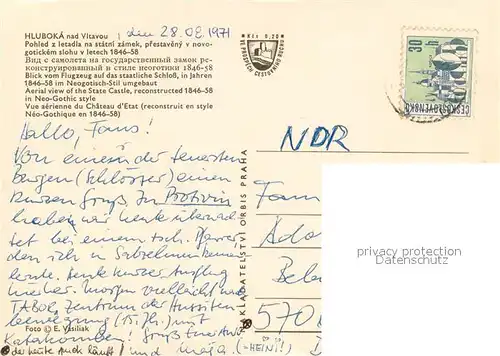 HLUBOKÁ nad Vltavou
den 28.08.1971
Pohled z letadla na státní zámek, přestavěný v novo-
gotickém slohu v letech 1846-58
Вид с самолета на государственный замок ре-
конструированный в стиле неоготики 1846-58
Blick vom Flugzeug auf das staatliche Schloß, in Jahren
1846-58 im Neogotisch-Stil umgebaut
Aerial view of the State Castle, reconstructed 1846-58
in Neo-Gothic style
Vue aérienne du Château d'Etat (reconstruit en style
Néo-Gothique en 1846-58)
Kčs 0,20
VE PROSPĚCH CESTOVNÍHO RUCHU
30 h
ČESKOSLOVENSKO
Hallo,
Von einem der teuersten
Burgen (Schlösser) einen
kurzen Gruß. In Protivin
haben wir heute übernach-
tet bei einem tsch. Pfarrer,
den ich in
lernte. Heute kurzer Ausflug
hierher. Morgen vielleicht nach
TABOR, Zentrum der Hussiten-
bewegung (15. Jh.) mit
Katakomben!
der heute auch läuft! und
(-HEINI!)
Foto © E. Vasiliak
NAKLADATELSTVÍ ORBIS PRAHA
NDR
570
privacy protection
Datenschutz